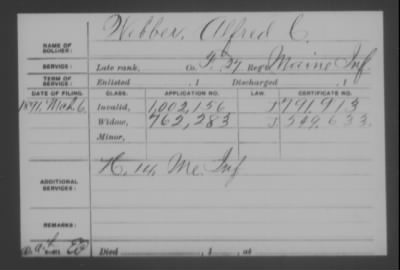 Webber, Alfred C.
NAME OF SOLDIER:
SERVICE: Late rank, Co. F. 29 Reg't Maine Inf.
TERM OF SERVICE: Enlisted , 1 Discharged , 1
DATE OF FILING. CLASS. APPLICATION NO. LAW. CERTIFICATE NO.
1891 Mch. 6. Invalid, 1,002,156 791,913
Widow, 762,283 549,633.
Minor,
H. 14, Me. Inf
ADDITIONAL SERVICES:
REMARKS:
Died , 1 , at